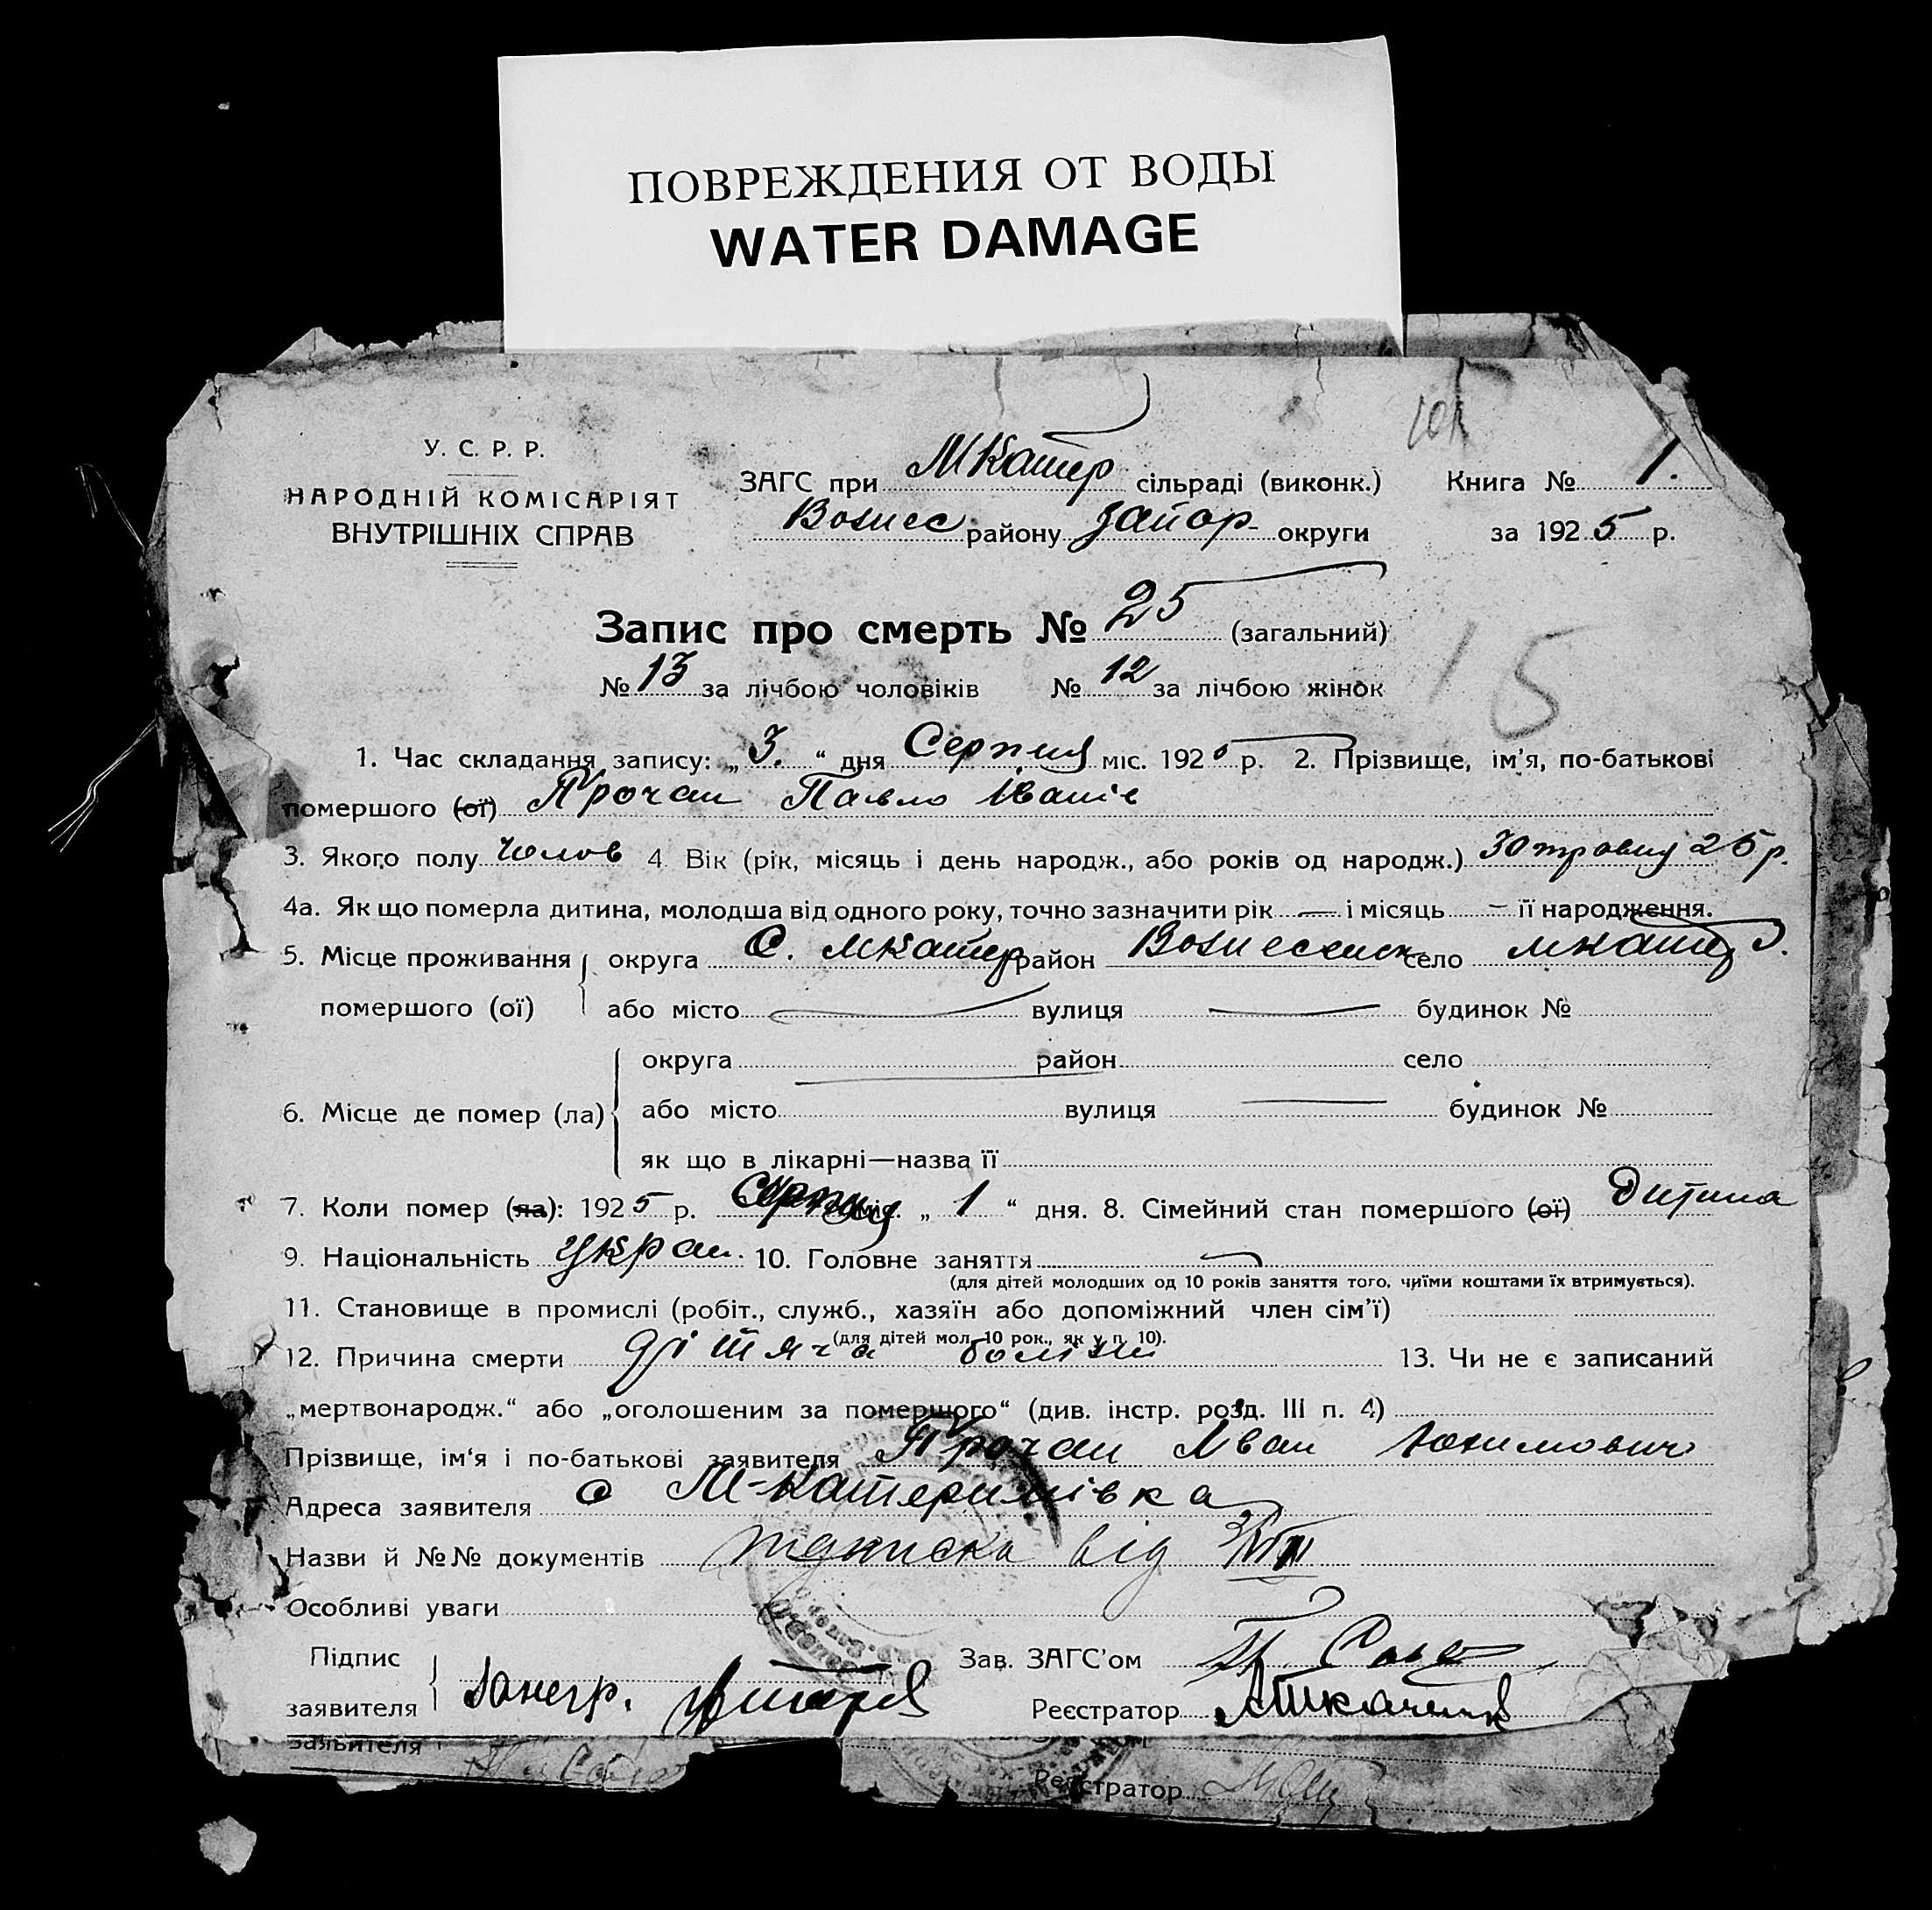 ПОВРЕЖДЕНИЯ ОТ ВОДЫ
WATER DAMAGE
У. С. Р. Р.
НАРОДНІЙ КОМІСАРІЯТ
ВНУТРІШНІХ СПРАВ
ЗАГС при МКатер сільраді (виконк.)
Вознес району Запор округи
Книга № 1.
за 1925 р.
Запис про смерть № 25 (загальний)
№ 13 за лічбою чоловіків № 12 за лічбою жінок
15
1. Час складання запису: „3.“ дня Серпня міс. 1925 р. 2. Прізвище, ім'я, по-батькові
помершого (ої) Прочан Павло Іванів
3. Якого полу Чолов 4. Вік (рік, місяць і день народж., або років од народж.) 30 травня 25 р.
4а. Як що померла дитина, молодша від одного року, точно зазначити рік — і місяць — її народження.
5. Місце проживання округа С. МКатер район Вознесенськ село МКатер
помершого (ої) або місто — вулиця — будинок №
округа район село
6. Місце де помер (ла) або місто вулиця — будинок №
як що в лікарні—назва її
7. Коли помер (ла): 1925 р. Серпня міс. „1“ дня. 8. Сімейний стан помершого (ої) Дитина
9. Національність Украі. 10. Головне заняття —
(для дітей молодших од 10 років заняття того, чиїми коштами їх втримується).
11. Становище в промислі (робіт., служб., хазяїн або допоміжний член сім'ї)
(для дітей мол. 10 рок., як у п. 10).
12. Причина смерти дітяча болізнь 13. Чи не є записаний
„мертвонародж.“ або „оголошеним за помершого“ (див. інстр. розд. III п. 4)
Прізвище, ім'я і по-батькові заявителя Прочан Іван Юхимович
Адреса заявителя с М-Катеринівка
Назви й №№ документів підписка від
Особливі уваги
Підпис
заявителя
Зав. ЗАГС'ом
Реєстратор Ткаченко
заявителя
Реєстратор